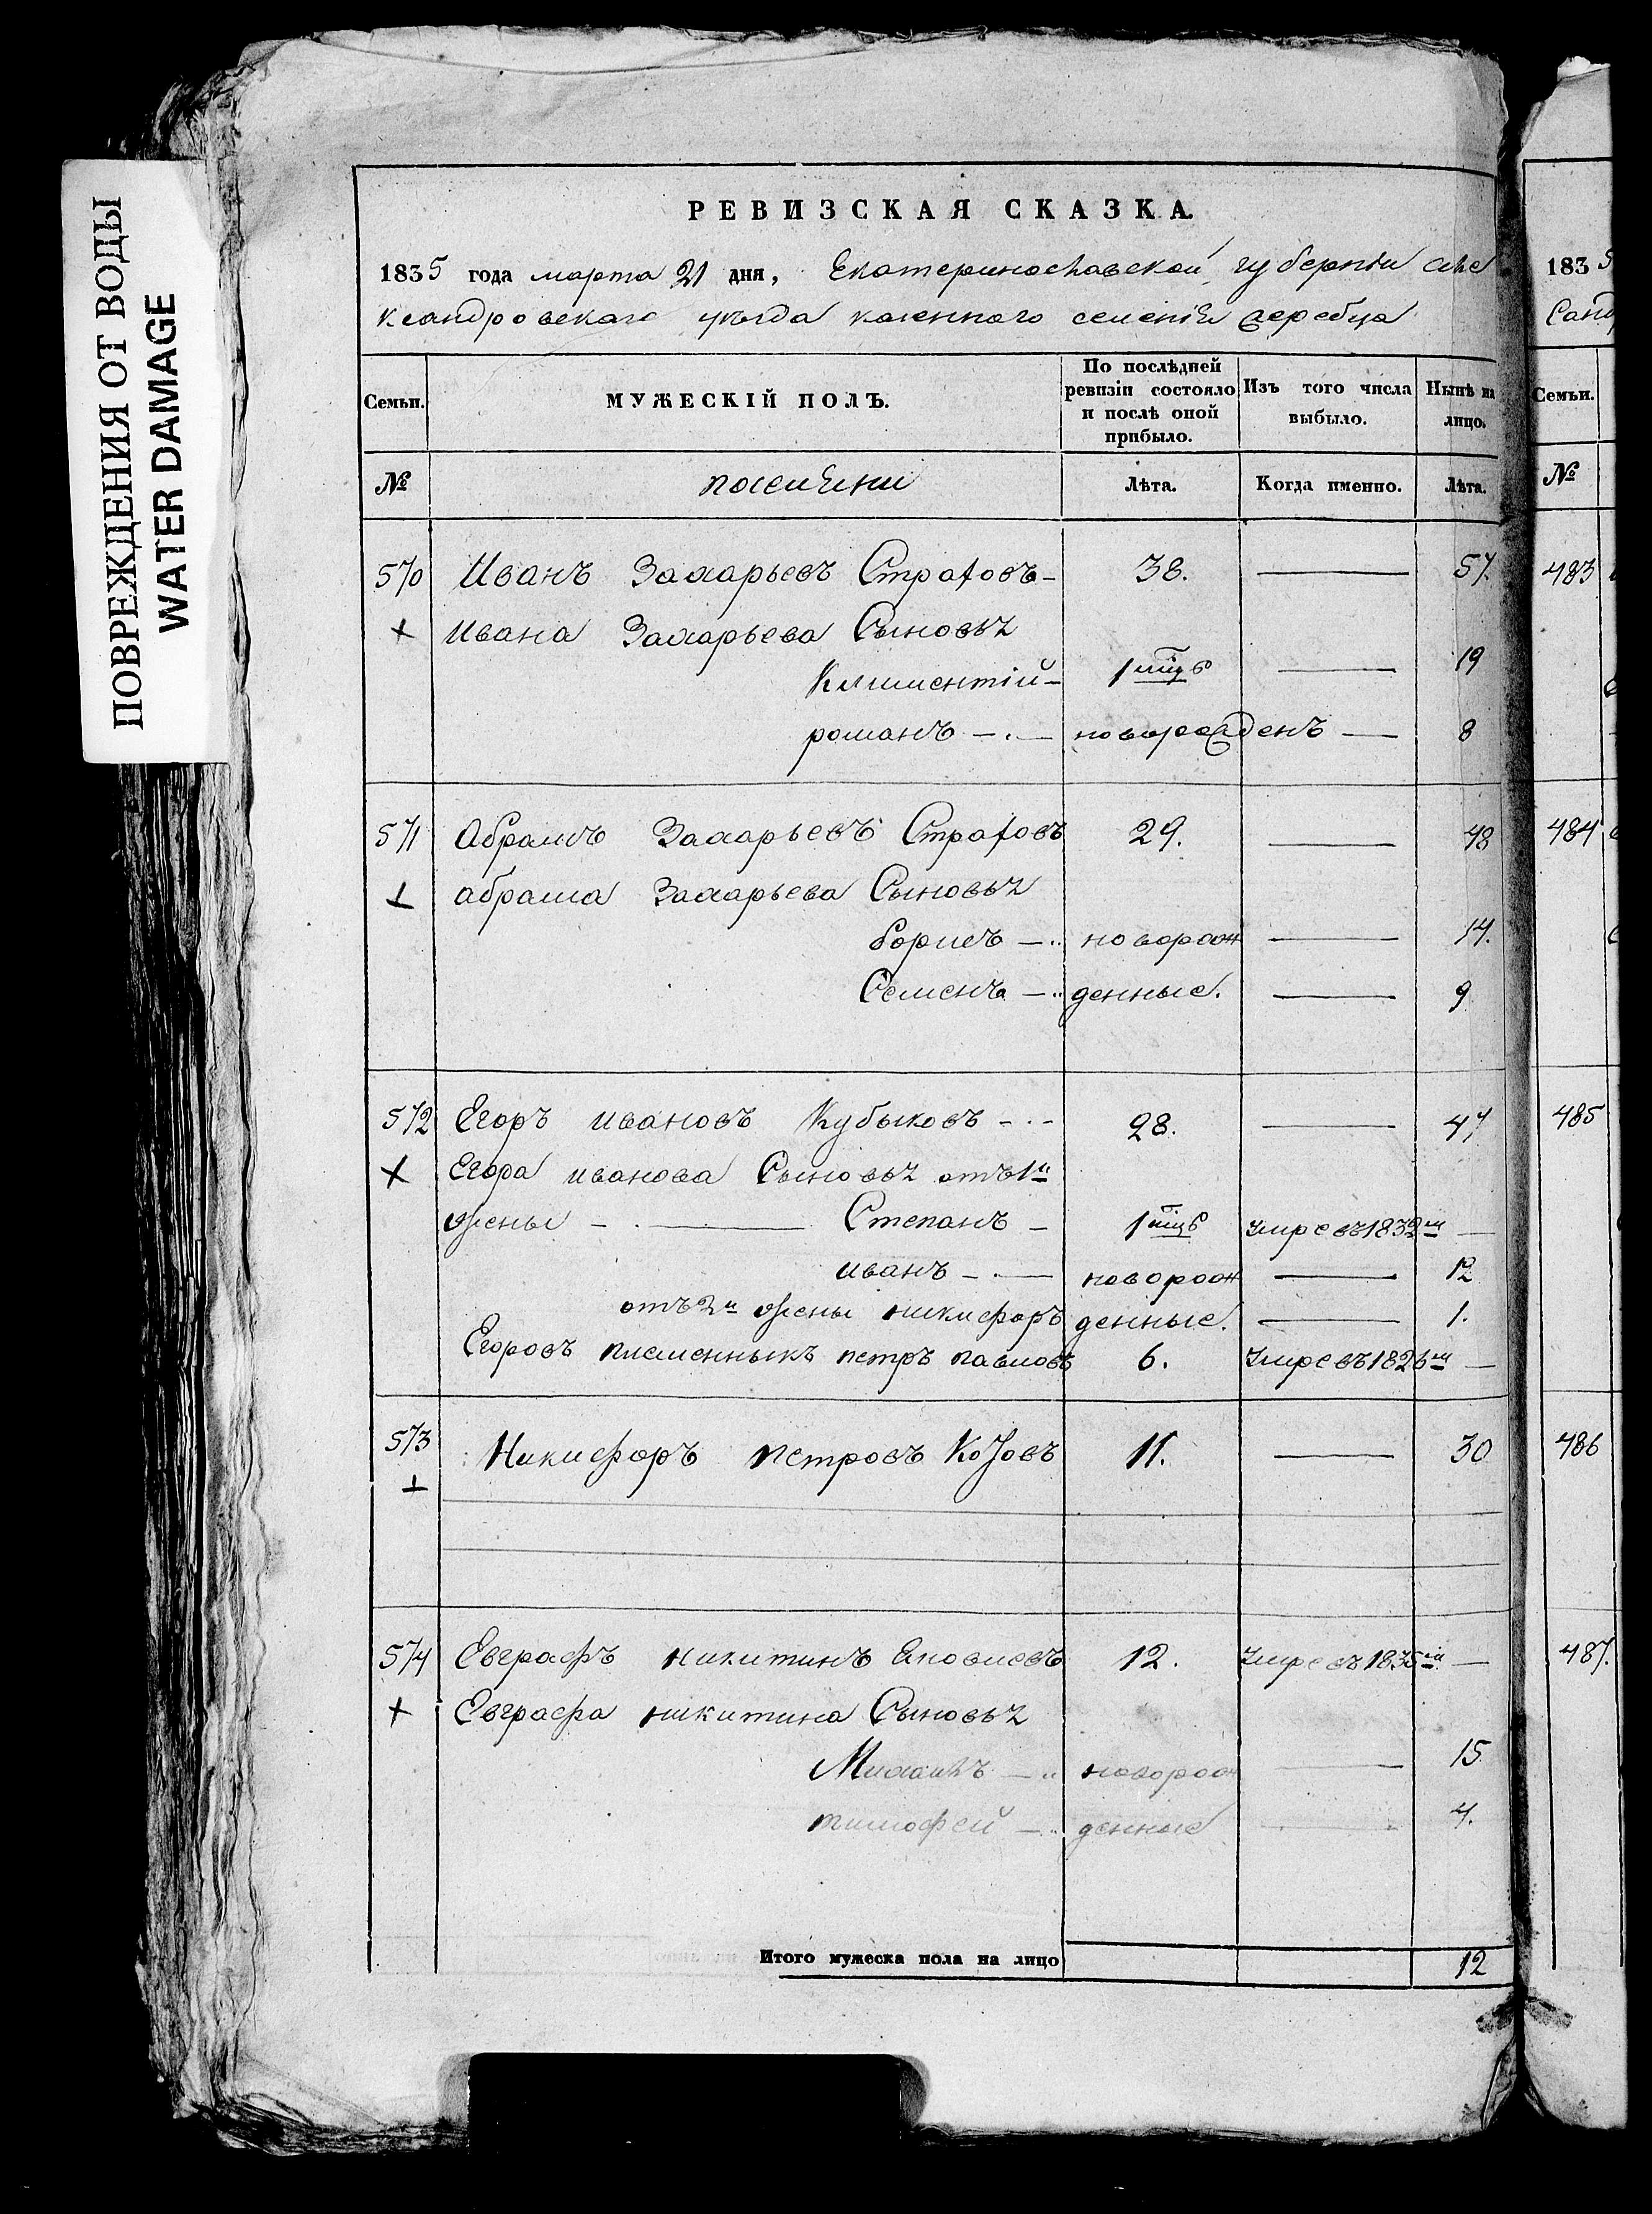 ПОВРЕЖДЕНИЯ ОТ ВОДЫ
WATER DAMAGE
РЕВИЗСКАЯ СКАЗКА.
1835 года марта 21 дня, Екатеринославской губерніи але
ксандровскаго уѣзда казенного селенія жеребца
Семьи. МУЖЕСКІЙ ПОЛЪ. По послѣдней ревизіи состояло и послѣ оной прибыло. Изъ того числа выбыло. Нынѣ на лицо.
№ Лѣта. Когда именно. Лѣта.
570 Иванъ Захарьевъ Стратовъ 38. — 57.
+ Ивана Захарьева Сыновьz
Климентій 1 — 19
романъ новорожденъ — 8
571 Абрамъ Захарьевъ Стратовъ 29. — 48
абрама Захарьева Сыновьz
борисъ новорож — 14.
Семенъ денные. — 9
572 Егоръ ивановъ Кубыковъ 28. — 47
+ Егора иванова Сыновьz отъ 1й
жены — Степанъ 1 умре въ 1832м —
иванъ новорож — 12
отъ 2й жены никифоръ денные. — 1.
Егоровъ племенникъ петръ павловъ 6. Умре въ 1826м —
573 Никифоръ петровъ Козовъ 11. — 30
574 Евграфъ никитинъ Яковлевъ 12. Умре въ 1835м —
+ Евграфа никитина Сыновьz
Михаилъ новорож — 15
тимофей денные — 4.
Итого мужеска пола на лицо 12
1835
Санд
Семьи.
№
483
484
485
486
487.